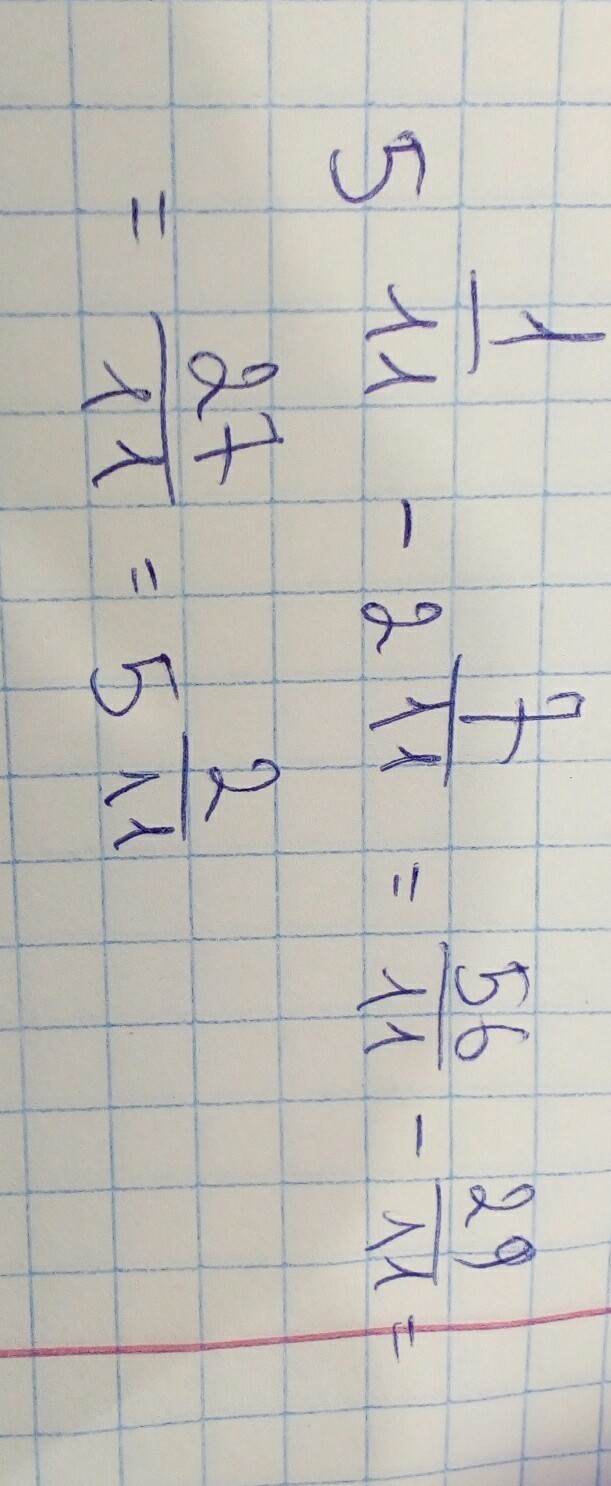 5 1/11 - 2 7/11 = 56/11 - 29/11 =
= 27/11 = 5 2/11